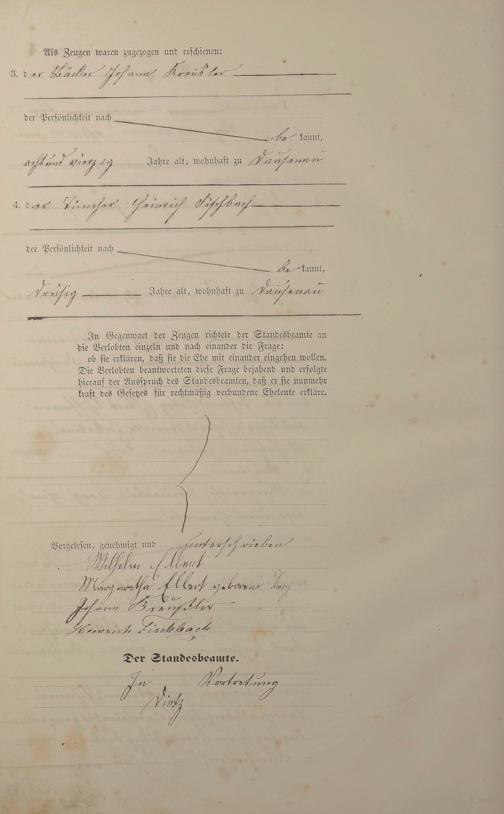 Als Zeugen waren zugezogen und erschienen:
3. der Bäcker Johann Kreußler
der Persönlichkeit nach
be kannt,
acht und vierzig Jahre alt, wohnhaft zu Dausenau
4. der Tüncher Heinrich Fischbach
der Persönlichkeit nach
be kannt,
dreißig Jahre alt, wohnhaft zu Dausenau
In Gegenwart der Zeugen richtete der Standesbeamte an
die Verlobten einzeln und nach einander die Frage:
ob sie erklären, daß sie die Ehe mit einander eingehen wollen.
Die Verlobten beantworteten diese Frage bejahend und erfolgte
hierauf der Ausspruch des Standesbeamten, daß er sie nunmehr
kraft des Gesetzes für rechtmäßig verbundene Eheleute erkläre.
Vorgelesen, genehmigt und unterschrieben
Wilhelm Elbert
Margaretha Elbert geborene
Johann Kreußler
Heinrich Fischbach
Der Standesbeamte.
In Vertretung
Dietz